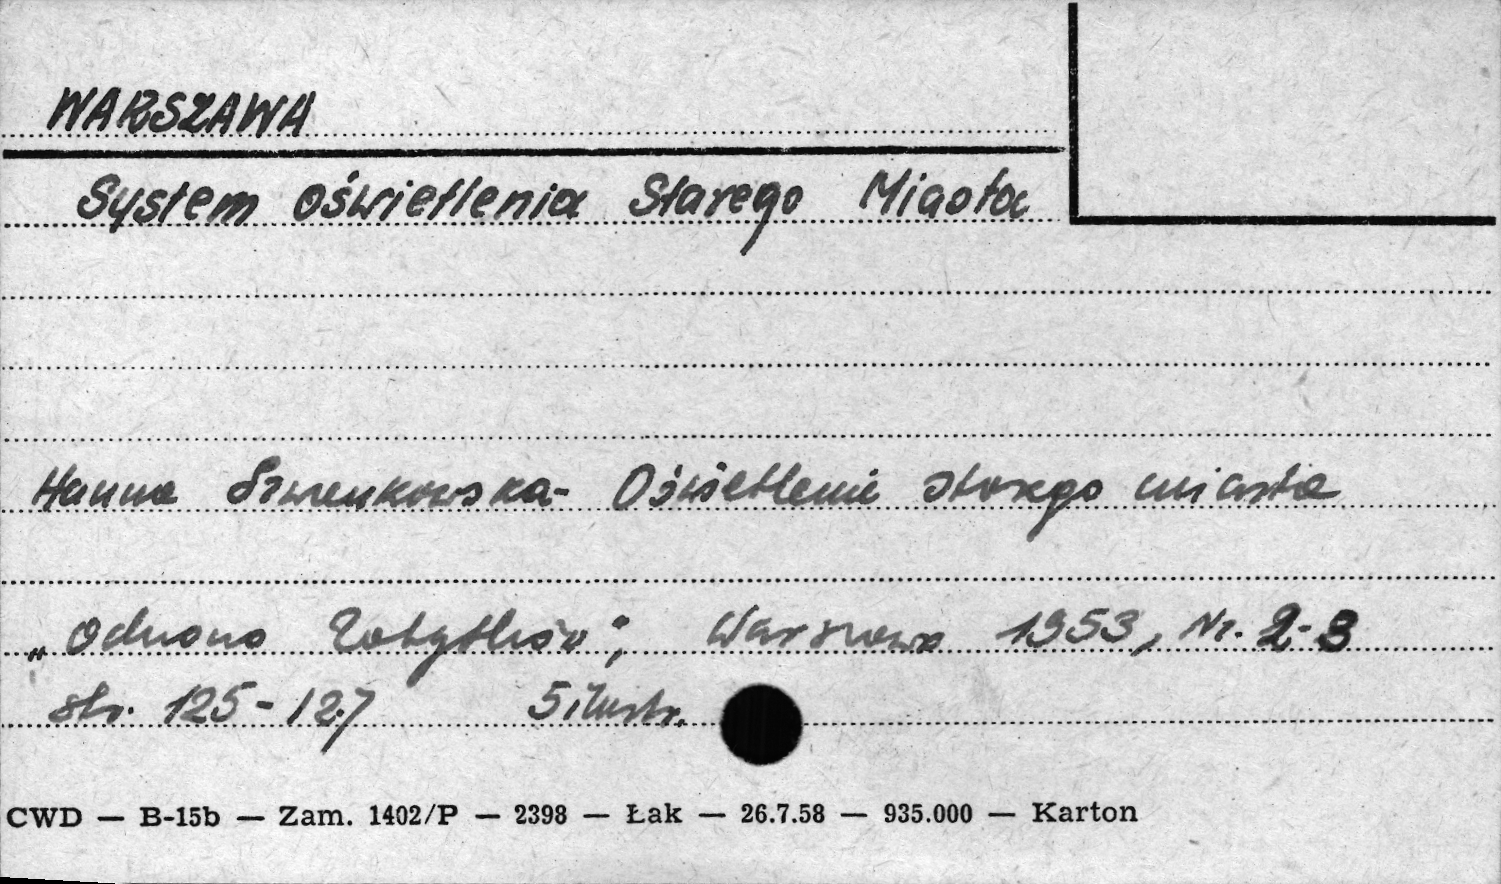 WARSZAWA
System oświetlenia Starego Miasta
Hanna Szwenkowska - Oświetlenie starego miasta
„Ochrona Zabytków", Warszawa 1953, Nr. 2-3
str. 125-127 5 ilustr.
CWD — B-15b — Zam. 1402/P — 2398 — Łak — 26.7.58 — 935.000 — Karton